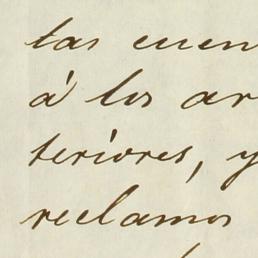 tas cuen
á los ar
teriores, y
reclamos